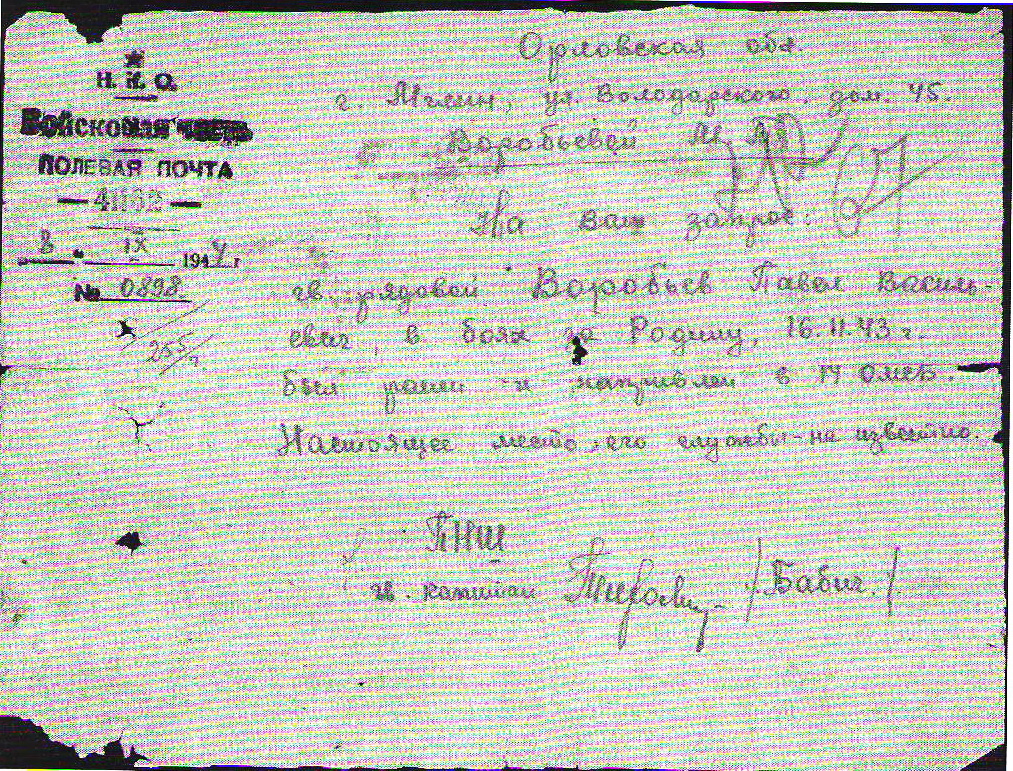 Н. К. О.
Войсковая часть
ПОЛЕВАЯ ПОЧТА
— 41162 —
8 " IX 1944 г
№ 0898
255
Орловская обл.
г. Мглин, ул. Володарского, дом. 45.
Воробьевой М.
На ваш запрос:
гв. рядовой Воробьев Павел Василь-
евич, в боях за Родину, 16.11.43 г.
был ранен и направлен в 14 ОМСБ.
Настоящее место его службы - не известно.
ПНШ
гв. капитан /Бабич./